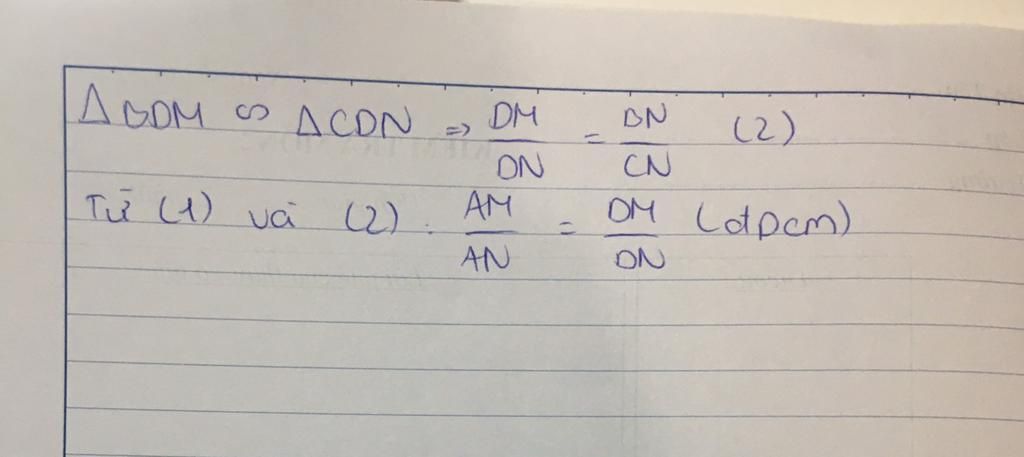 ΔBDM ∽ ΔCDN ⇒ DM/DN = BN/CN (2)
Từ (1) và (2) : AM/AN = DM/DN (đpcm)